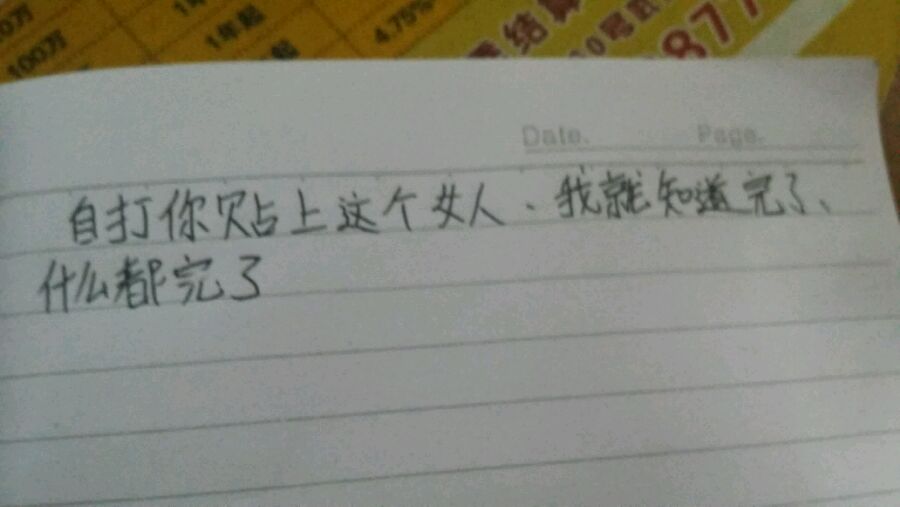 0万
1年
100万
1年起
起
4.75%
票结算
10号
877
Date.
Page.
自打你贴上这个女人、我就知道完了、
什么都完了